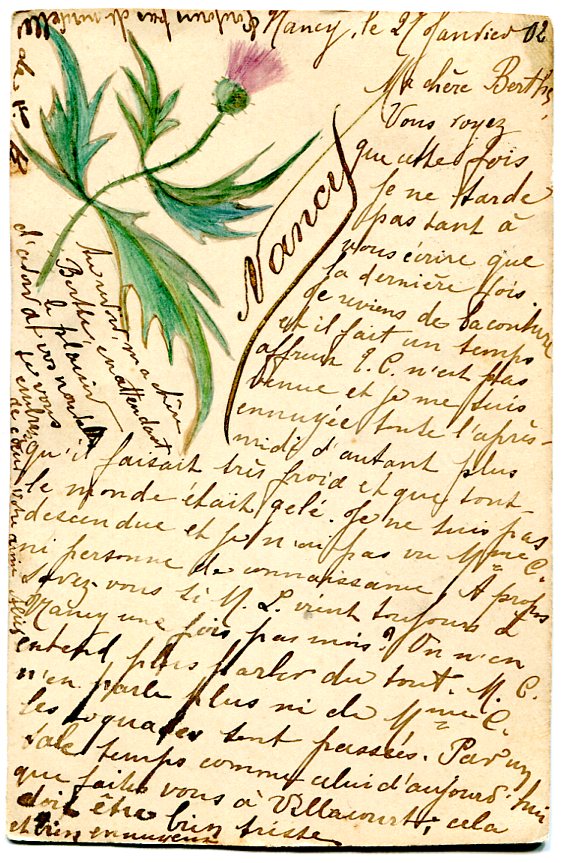 Nancy, le 21 Janvier 02
Ma chère Berthe,
Vous voyez
que cette fois
je ne tarde
pas tant à
vous écrire que
la dernière fois.
Je reviens de la couture
et il fait un temps
affreux E. C. n'est pas
venue et je me suis
ennuyée toute l'après-
midi d'autant plus
qu'il faisait très froid et que tout
le monde était gelé. Je ne suis pas
descendue et je n'ai pas vu Mme C.
ni personne de connaissance, A propos
savez-vous si M. L. vient toujours à
Nancy une fois pas mois? On n'en
entend plus parler du tout. M. C.
n'en parle plus ni de Mme C.
les toquades sont passées. Par un
sale temps comme celui d'aujourd'hui
que faites vous à Villacourt; cela
doit être bien triste
et bien ennuyeux
Au revoir, ma chère
Berthe, en attendant
le plaisir
d'avoir de vos nouvelles
je vous
embrasse
de cœur votre amie
Toujours pas de nouvelles
de
Nancy